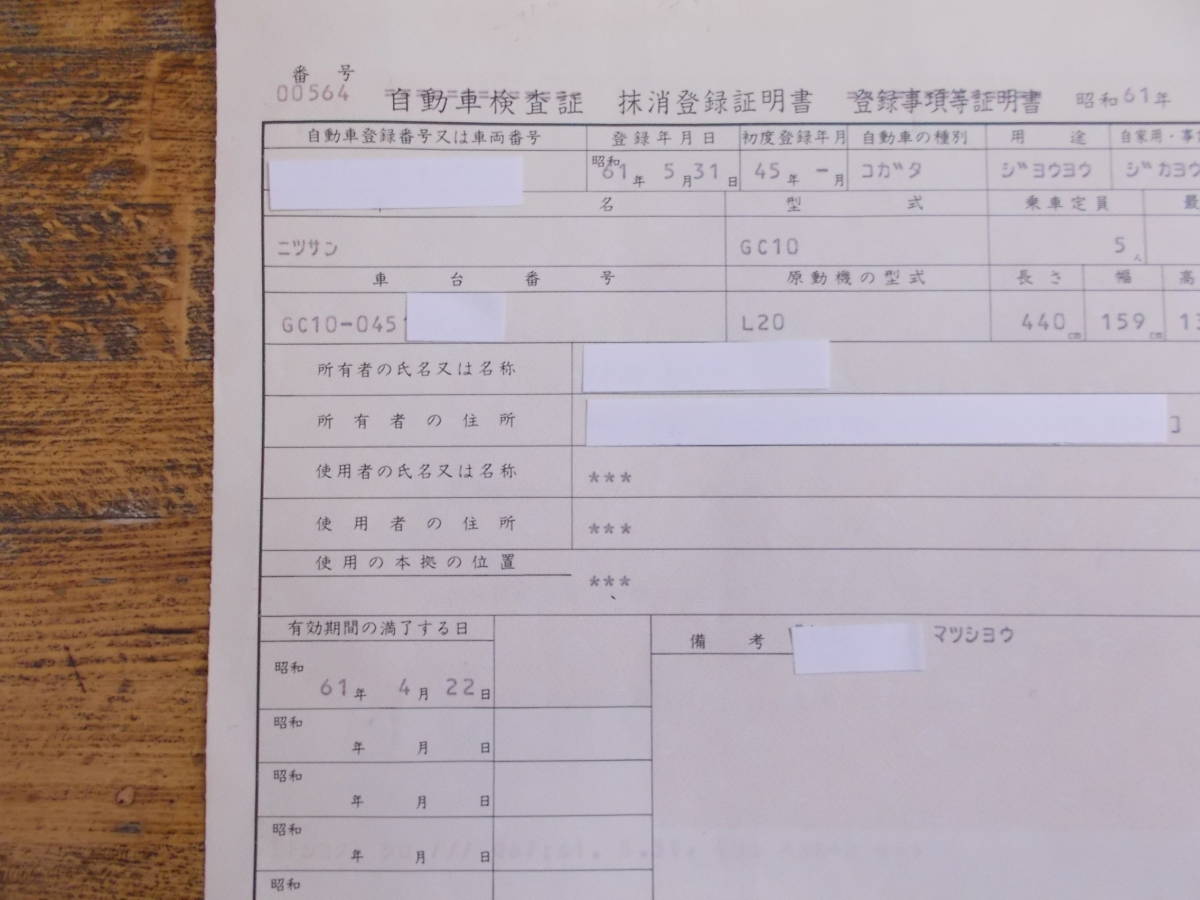 番号
00564 自動車検査証 抹消登録証明書 登録事項等証明書 昭和61年
自動車登録番号又は車両番号 登録年月日 初度登録年月 自動車の種別 用途 自家用・事
昭和61年 5月31日 45年 -月 コガタ ジヨウヨウ ジカヨウ
名 型式 乗車定員 最
ニツサン GC10 5人
車台番号 原動機の型式 長さ 幅 高
GC10-045 L20 440cm 159cm 13
所有者の氏名又は名称
所有者の住所
使用者の氏名又は名称 ***
使用者の住所 ***
使用の本拠の位置 ***
有効期間の満了する日 備考 マツシヨウ
昭和
61年 4月 22日
昭和
年 月 日
昭和
年 月 日
昭和
年 月 日
昭和